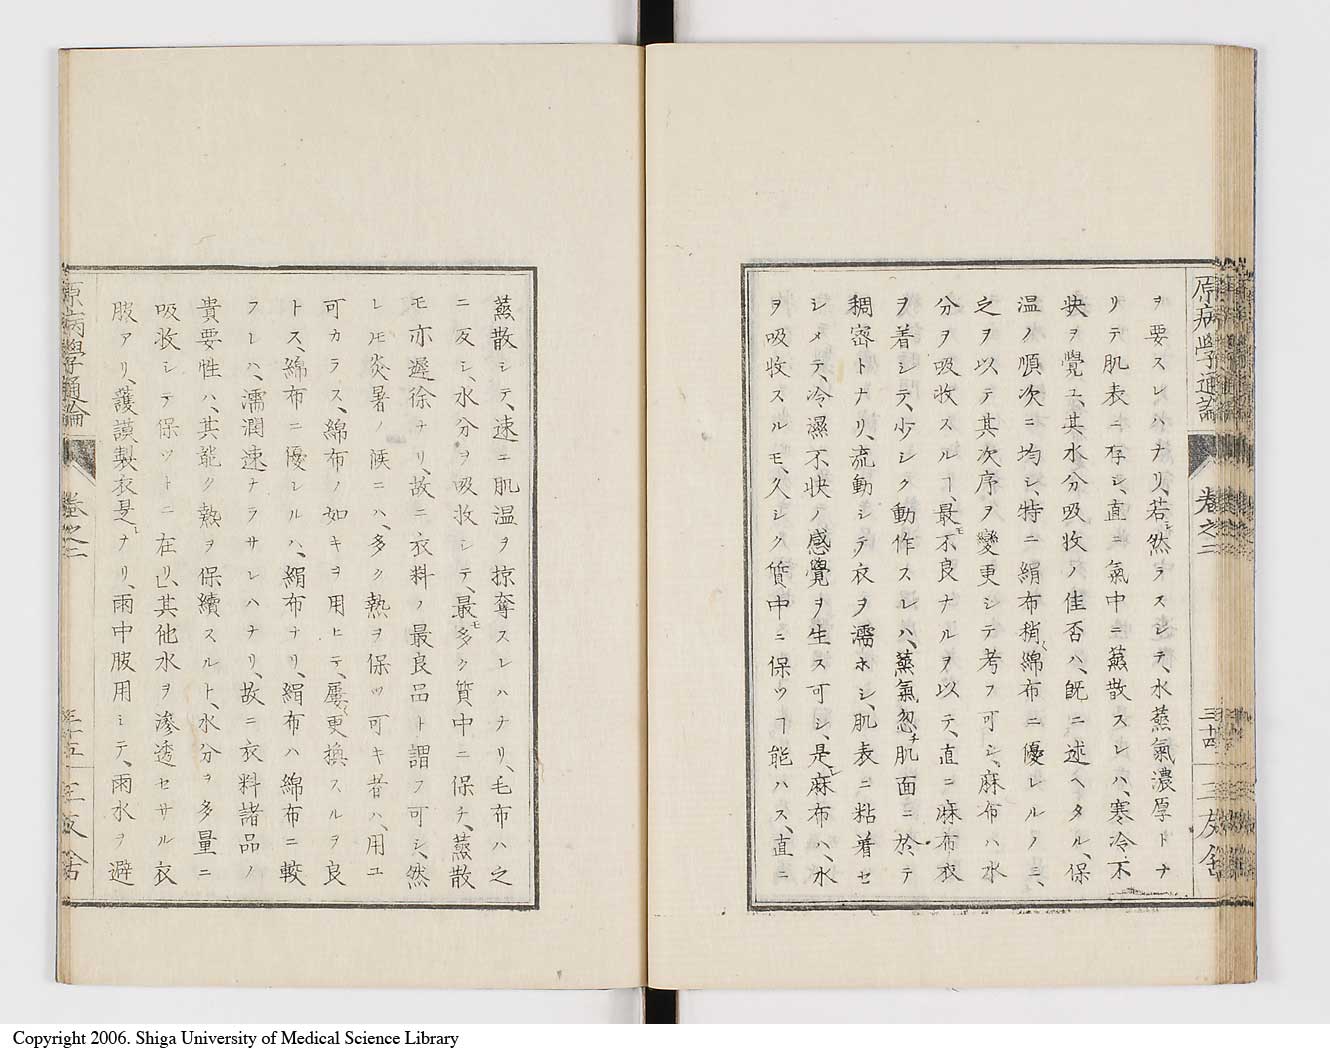 原病學通論
卷之二
三十四
三友舍
ヲ要スレハナリ、若然ラスシテ、水蒸氣濃厚トナ
リテ肌表ニ存シ、直ニ氣中ニ蒸散スレハ、寒冷不
快ヲ覺ユ、其水分吸收ノ佳否ハ、既ニ述ヘタル、保
温ノ順次ニ均シ、特ニ絹布稍綿布ニ優レルノミ、
之ヲ以テ其次序ヲ變更シテ考フ可シ、麻布ハ水
分ヲ吸收スルヿ、最モ不良ナルヲ以テ、直ニ麻布衣
ヲ着シテ、少シク動作スレハ、蒸氣忽チ肌面ニ於テ
稠密トナリ、流動シテ衣ヲ濡ホシ、肌表ニ粘着セ
シメテ、冷濕不快ノ感覺ヲ生ス可シ、是レ麻布ハ、水
ヲ吸收スルモ、久シク質中ニ保ツヿ能ハス、直ニ
蒸散シテ、速ニ肌温ヲ掠奪スレハナリ、毛布ハ之
ニ反シ、水分ヲ吸收シテ、最モ多ク質中ニ保チ、蒸散
モ亦遲徐ナリ、故ニ衣料ノ最良品ト謂フ可シ、然
レ𪜈炎暑ノ候ニハ、多ク熱ヲ保ツ可キ者ハ、用ユ
可カラス、綿布ノ如キヲ用ヒテ、屢更換スルヲ良
トス、綿布ニ優レルハ、絹布ナリ、絹布ハ綿布ニ較
フレハ、濡潤速ナラサレハナリ、故ニ衣料諸品ノ
貴要性ハ、其能ク熱ヲ保續スルト、水分ヲ多量ニ
吸收シテ保ツトニ在リ、其他水ヲ滲透セサル衣
服アリ、護謨製衣是レナリ、雨中服用シテ、雨水ヲ避
原病學通論
卷之二
三十五
三友舍
Copyright 2006. Shiga University of Medical Science Library